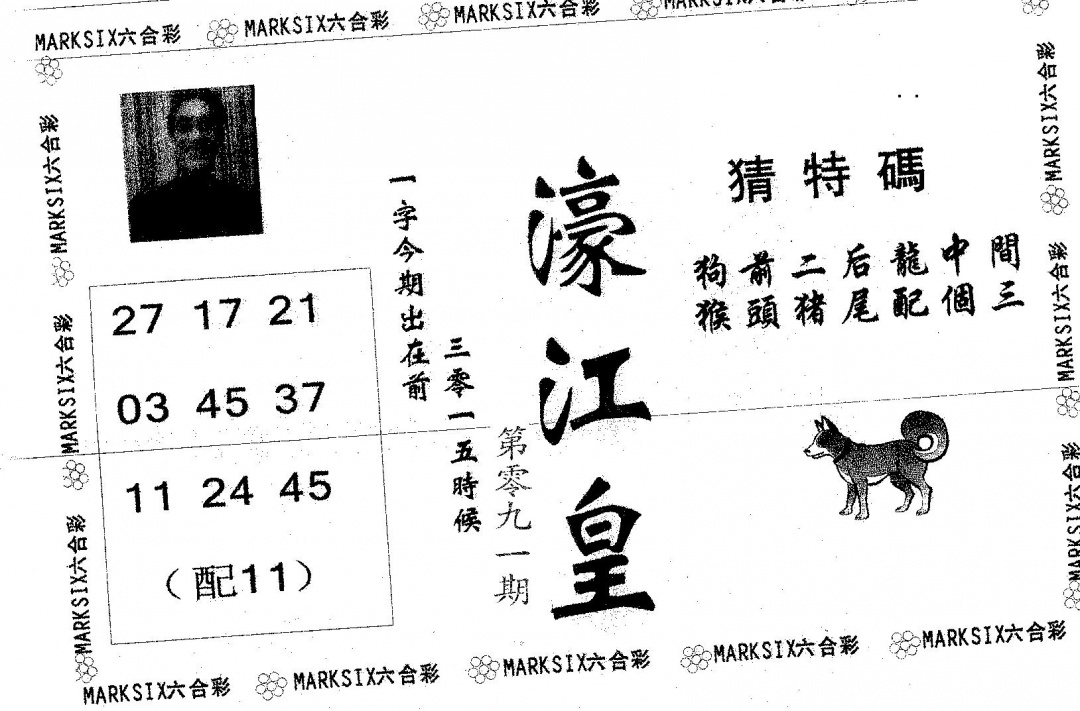 MARKSIX六合彩 MARKSIX六合彩 MARKSIX六合彩 MARKSIX六合彩
MARKSIX六合彩
MARKSIX六合彩
MARKSIX六合彩
27 17 21
03 45 37
11 24 45
（配11）
一字今期出在前
三零一五時候
第零九一期
濠江皇
猜特碼
狗前二后龍中間
猴頭猪尾配個三
MARKSIX六合彩
MARKSIX六合彩
MARKSIX六合彩
MARKSIX六合彩 MARKSIX六合彩 MARKSIX六合彩 MARKSIX六合彩 MARKSIX六合彩